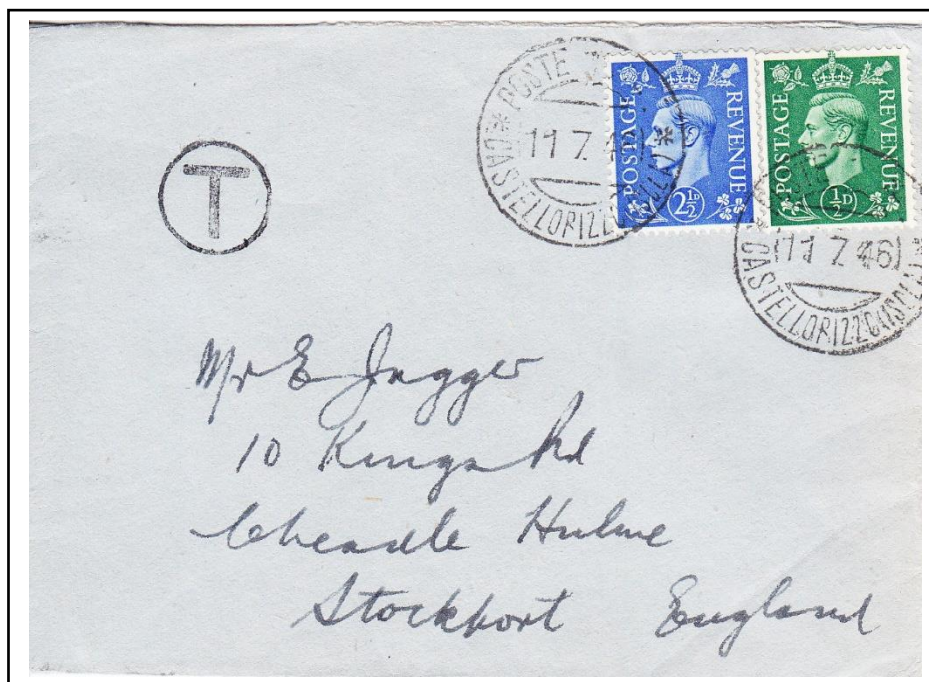 POSTE
11 7 4
* CASTELLORIZZO
POSTAGE REVENUE
2½D
POSTAGE REVENUE
½D
(11 7 46)
CASTELLORIZZO (ISOLA) *
T
Mr E Jagger
10 Kings Rd
Cheadle Hulme
Stockport England